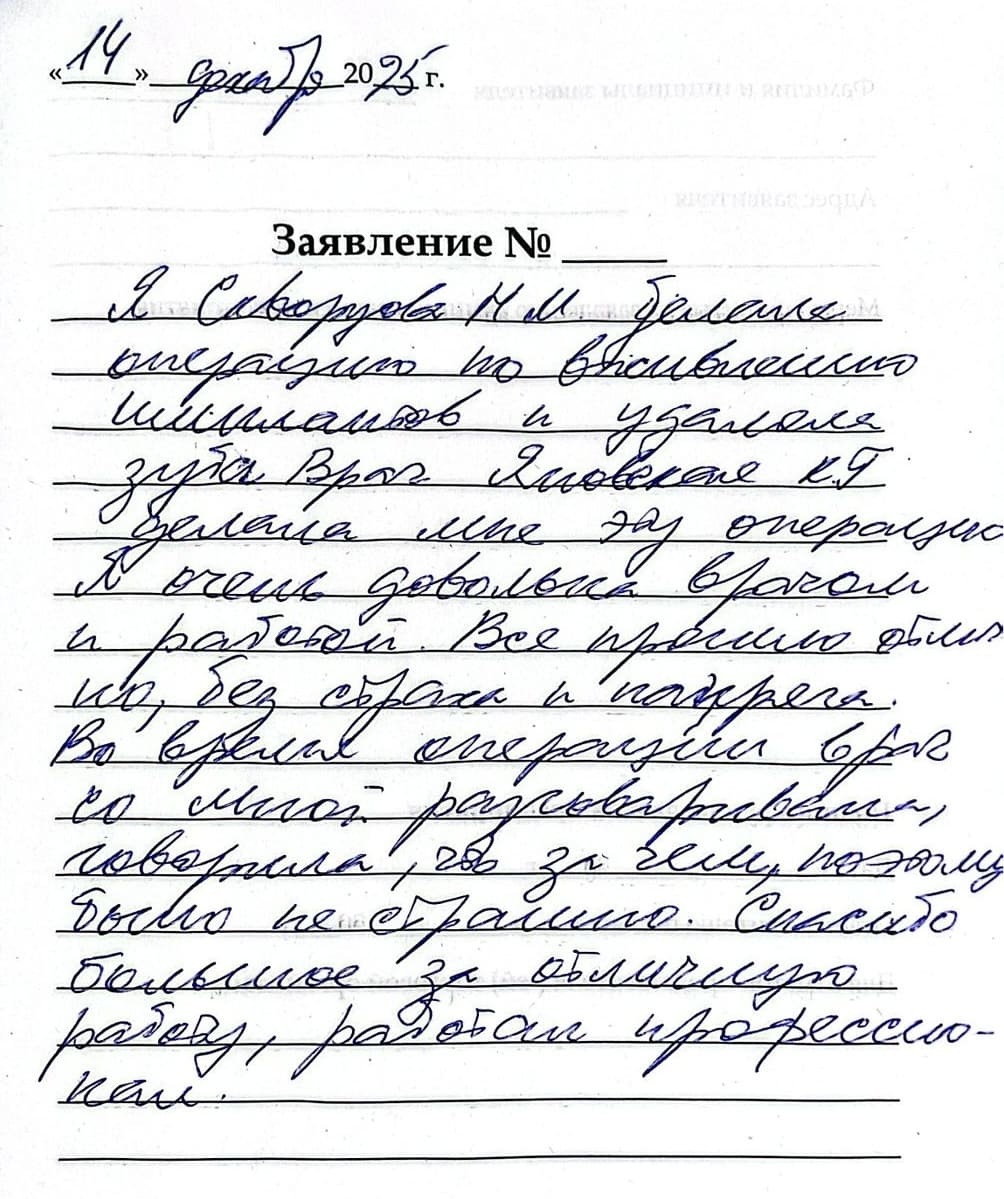 «14» декабря 2025 г.
Заявление № _____
Я Скворцова Н.М. делала
операцию по вживлению
имплантов и удаляла
зуба Врач Яновская К.Г
делала мне эту операцию
Я очень довольна врачом
и работой. Все прошло отлич
но, без страха и
Во время операции врач
со мной разговаривала,
говорила, что за чем, поэтому
было не страшно. Спасибо
большое за отличную
работу, работал профессио-
нал.